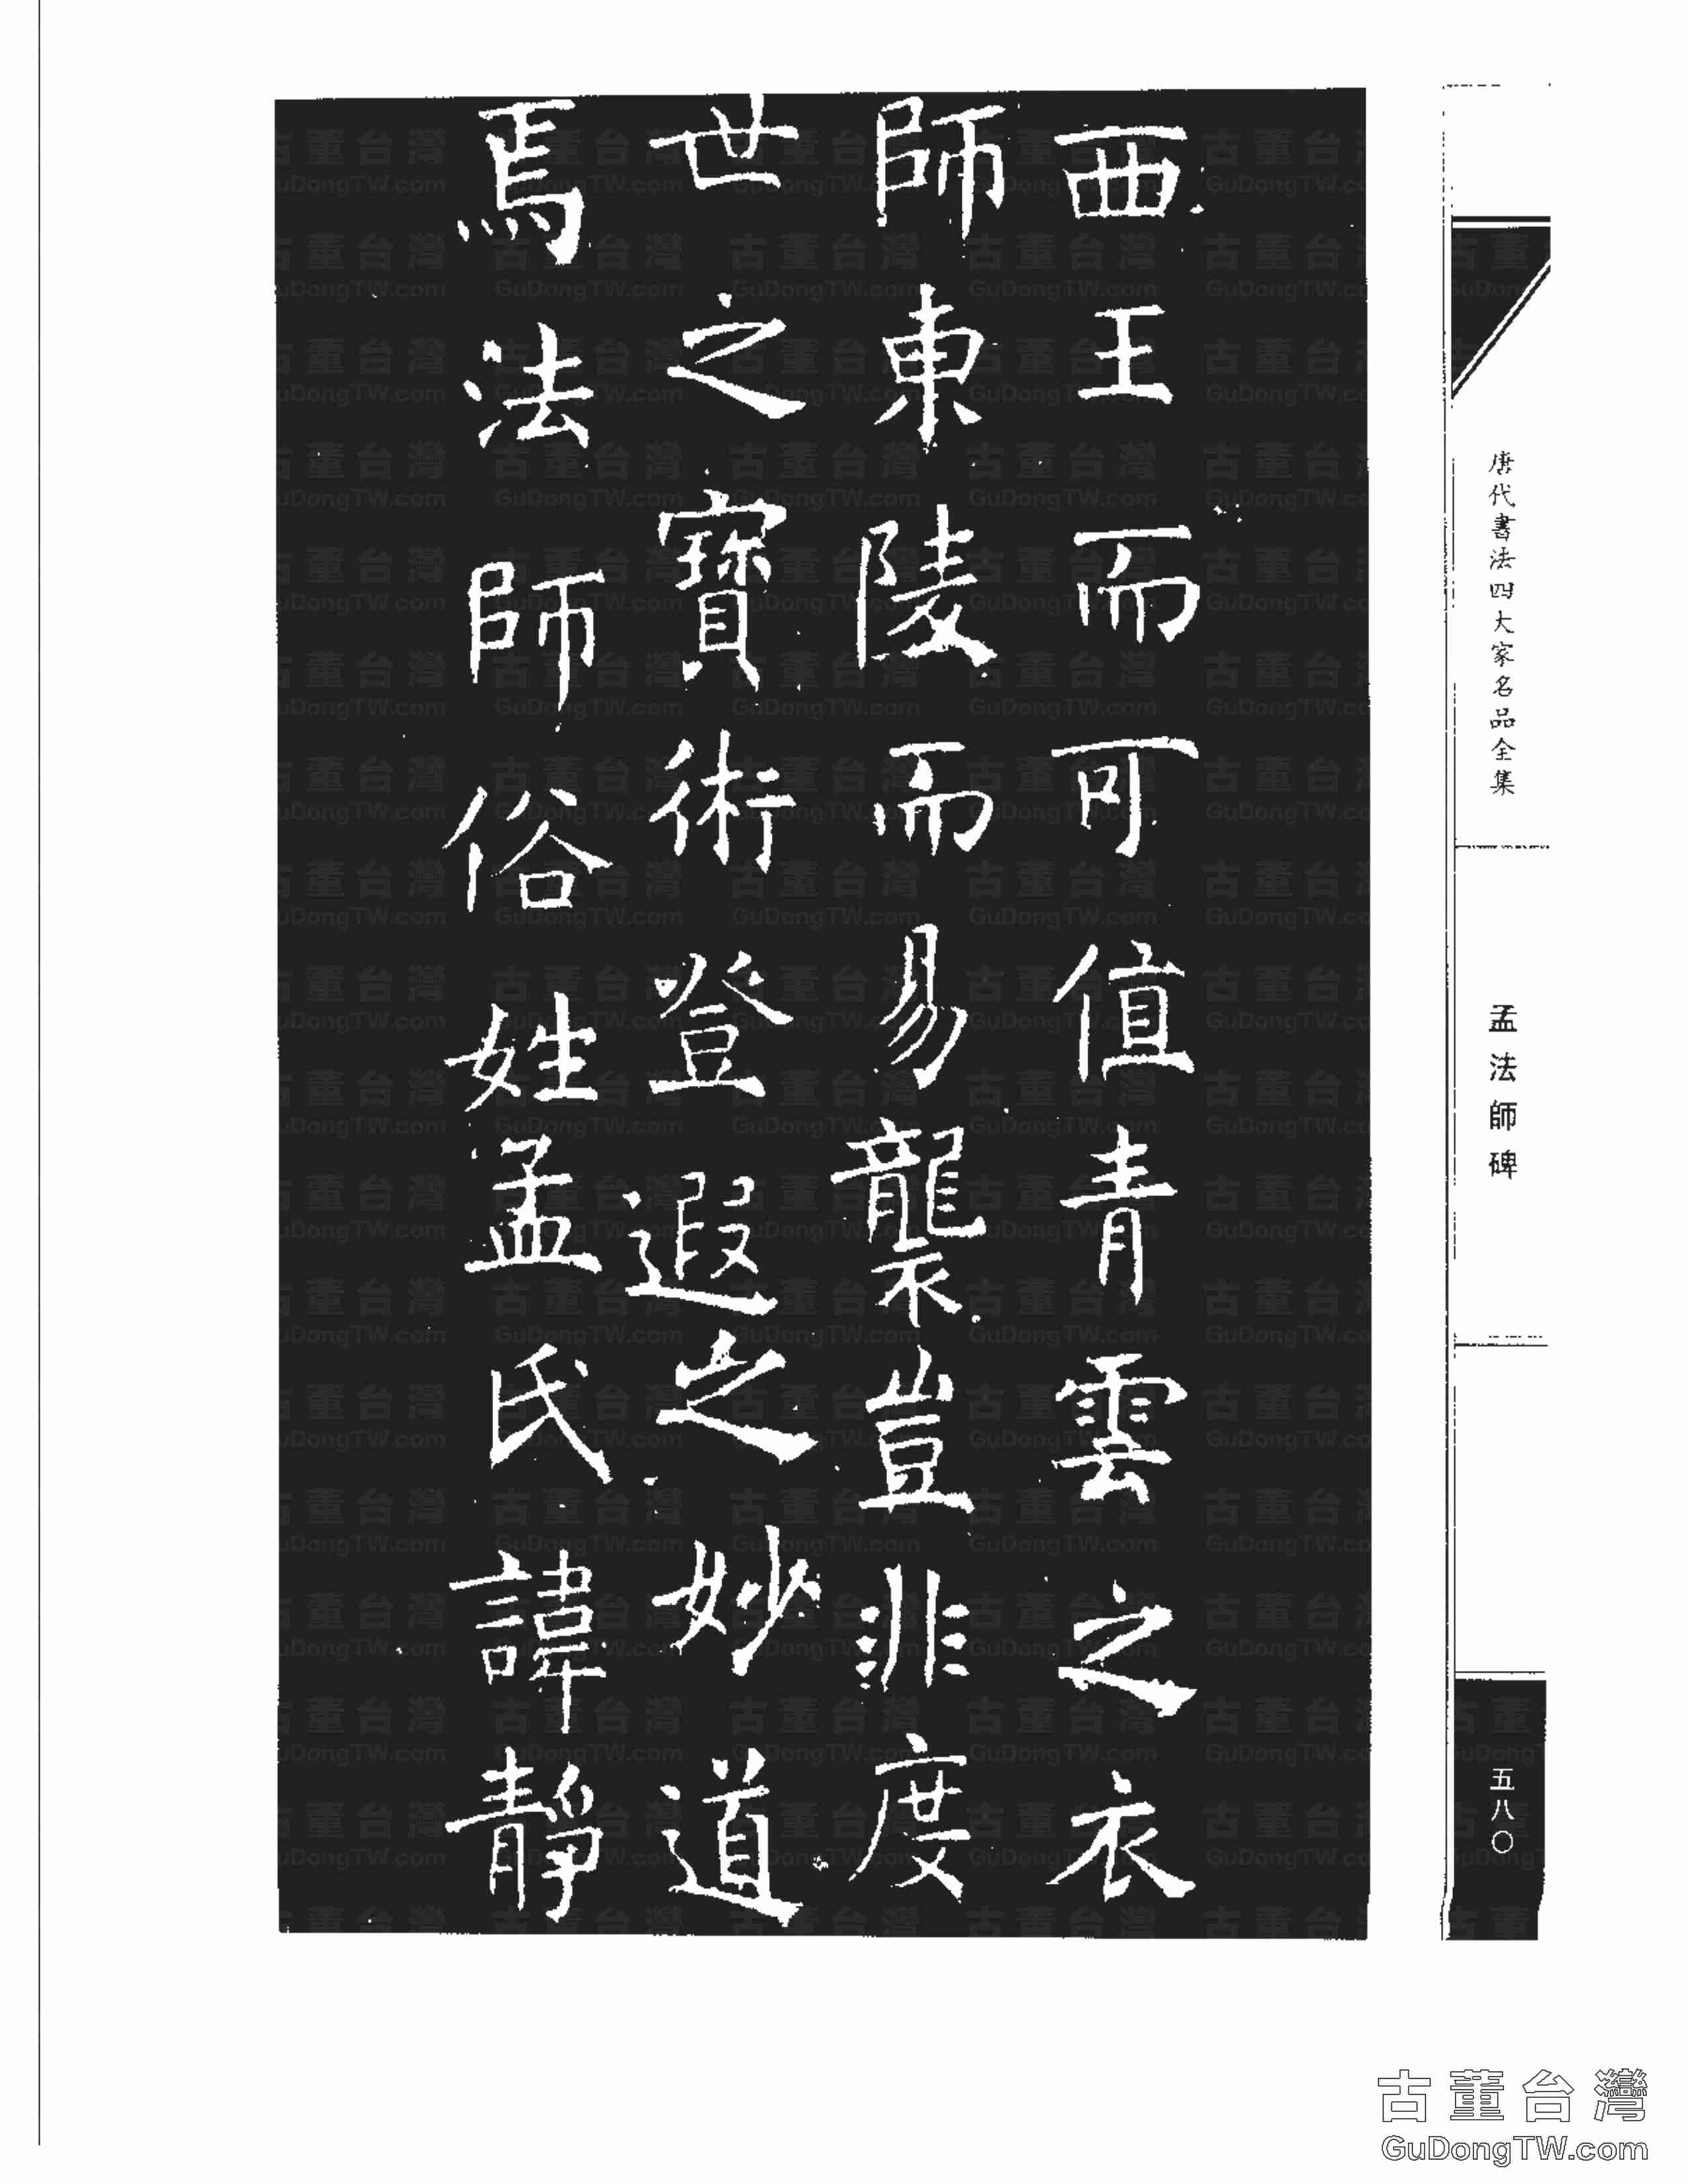 西王而可值青雲之衣
師東陵而易襲豈非度
世之寶術登遐之妙道
焉法師俗姓孟氏諱靜
唐代書法四大家名品全集
孟法師碑
五八〇
古董台灣
GuDongTW.com